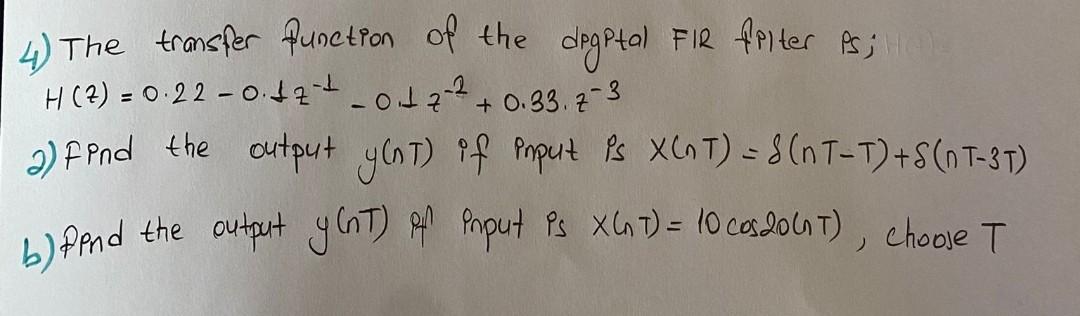 4) The transfer function of the digital FIR filter is;
H(z) = 0.22 - 0.1z⁻¹ - 0.1z⁻² + 0.33.z⁻³
a) Find the output y(nT) if input is x(nT) = δ(nT-T)+δ(nT-3T)
b) Find the output y(nT) if input is x(nT) = 10cos20(nT), choose T